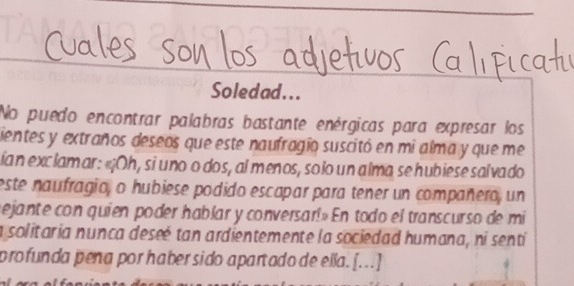 Cuales son los adjetivos Calificati
Soledad...
No puedo encontrar palabras bastante enérgicas para expresar los
ientes y extraños deseos que este naufragio suscitó en mi alma y que me
ían exclamar: «¡Oh, si uno o dos, al menos, solo un alma se hubiese salvado
este naufragio, o hubiese podido escapar para tener un compañero, un
ejante con quien poder hablar y conversar!» En todo el transcurso de mi
a solitaria nunca deseé tan ardientemente la sociedad humana, ni sentí
profunda pena por haber sido apartado de ella. [...]